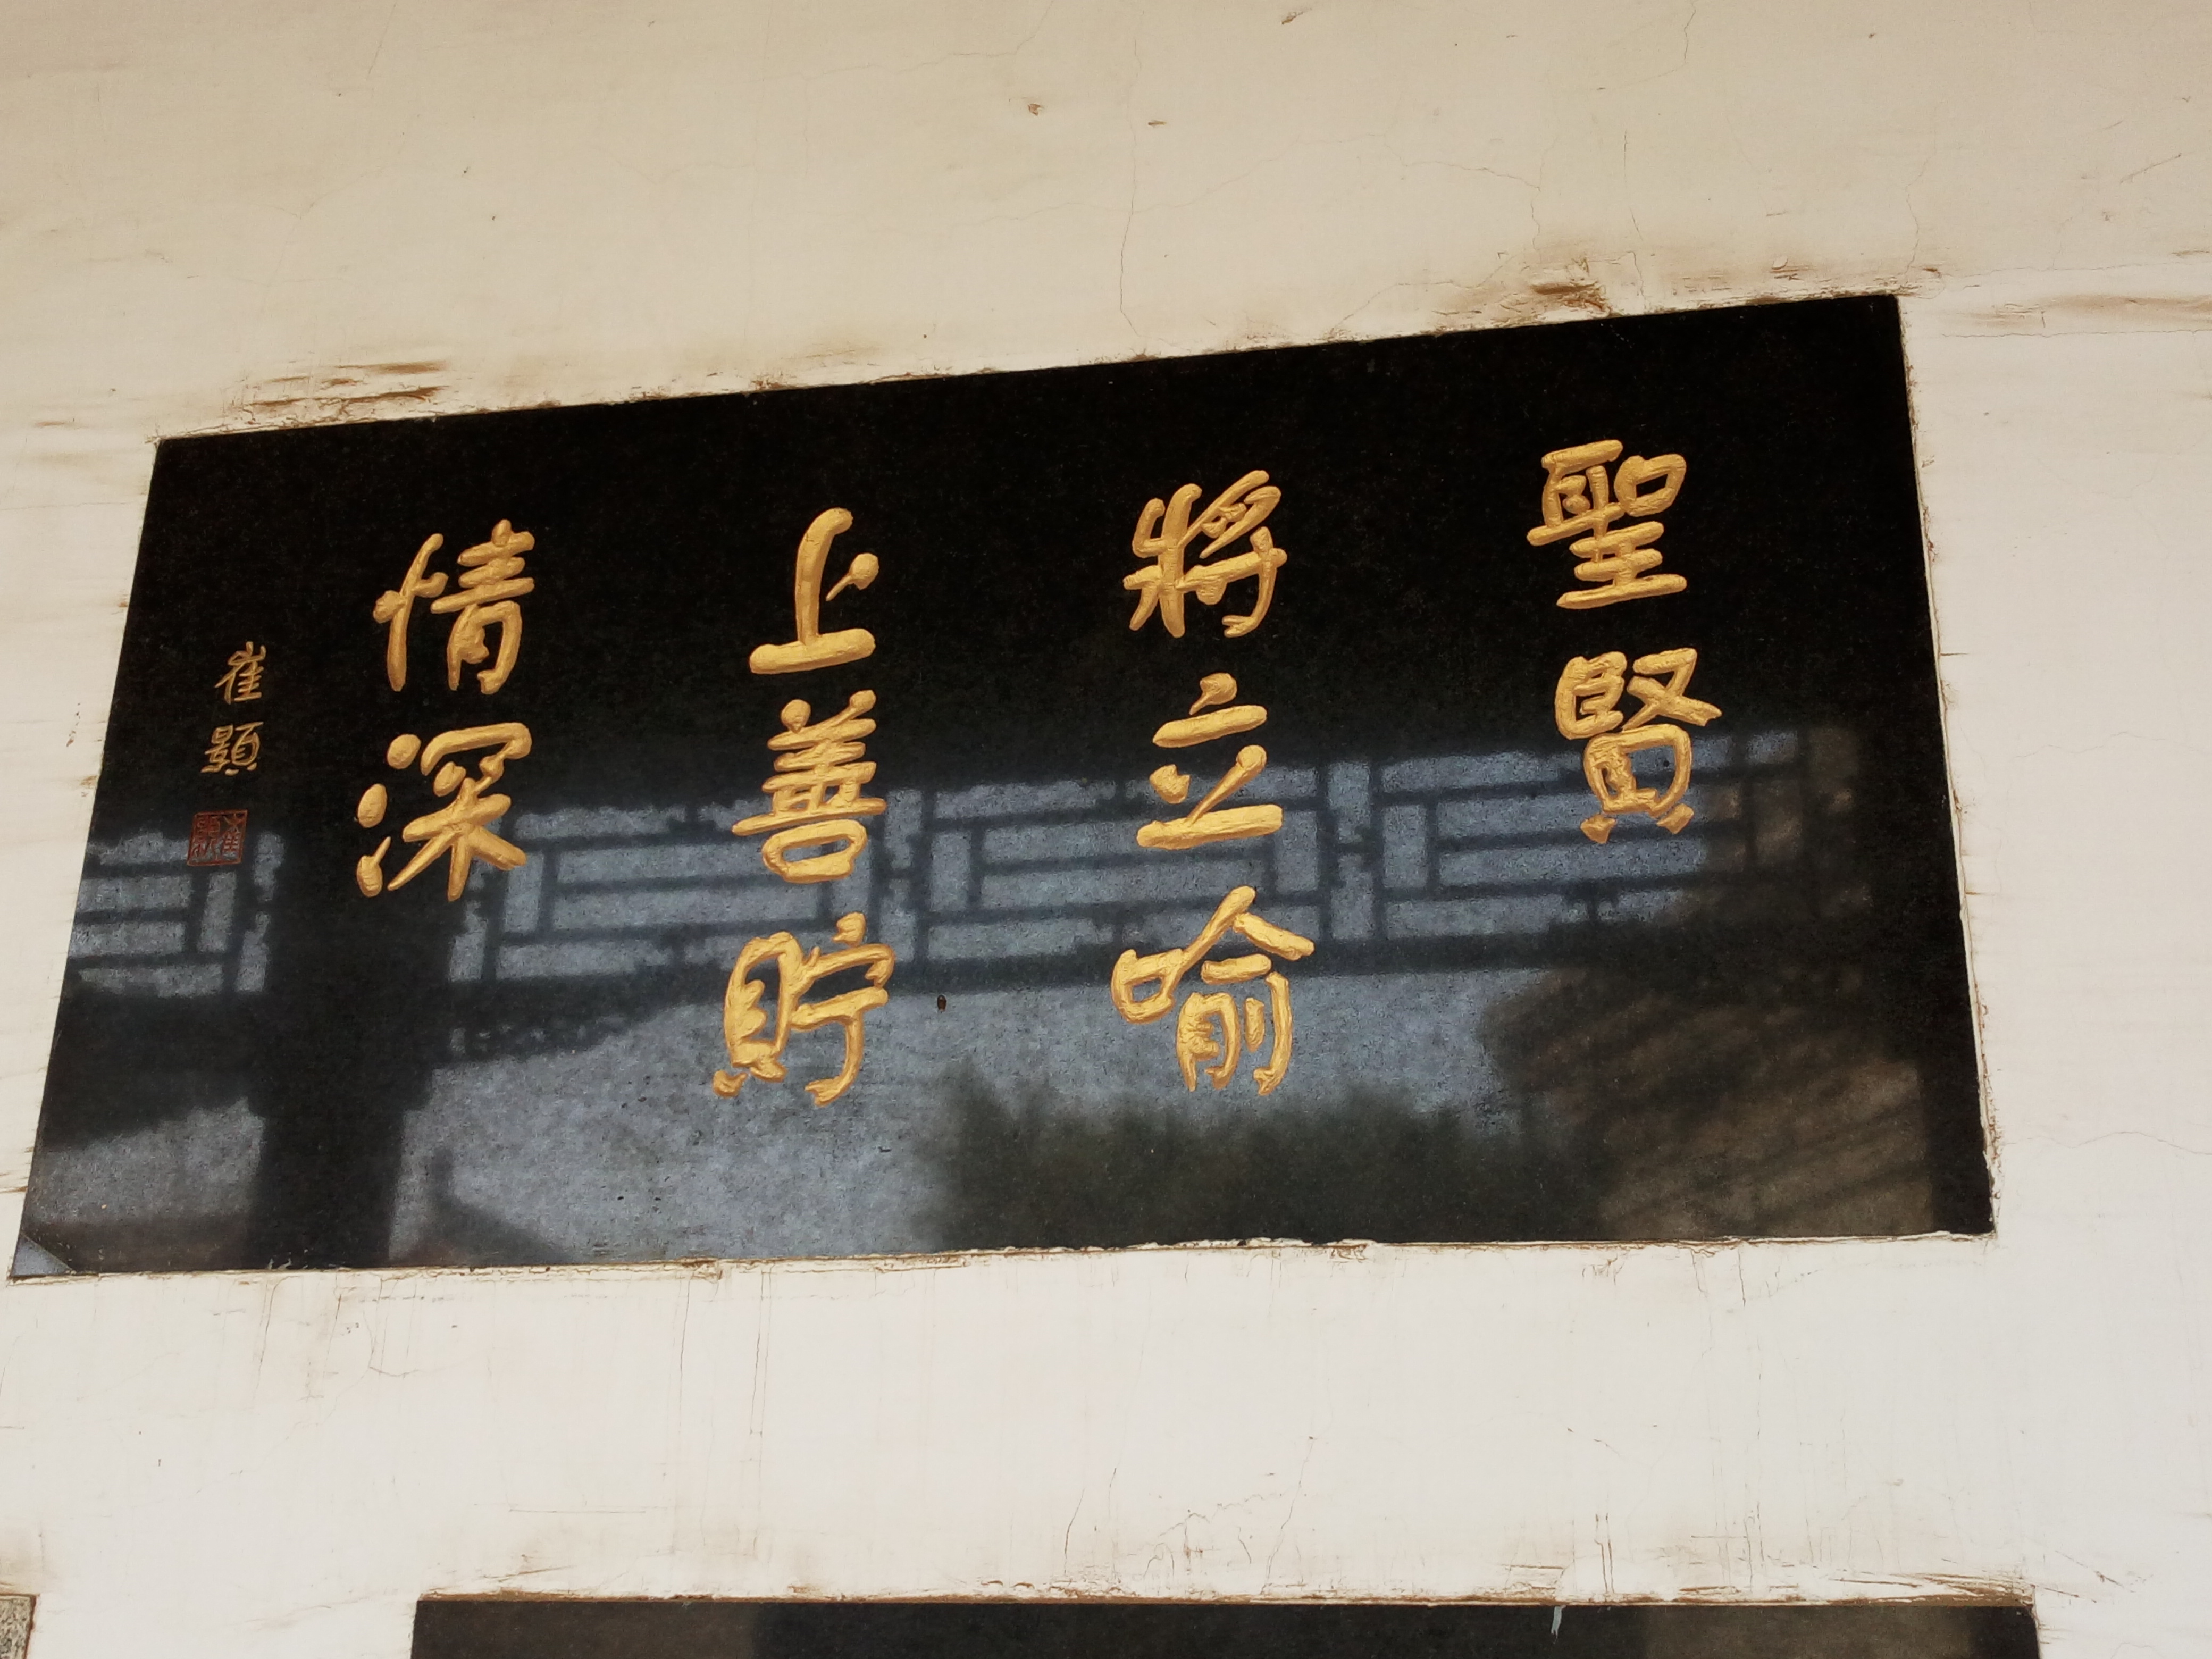 聖賢
將立喻
上善貯
情深
崔顥